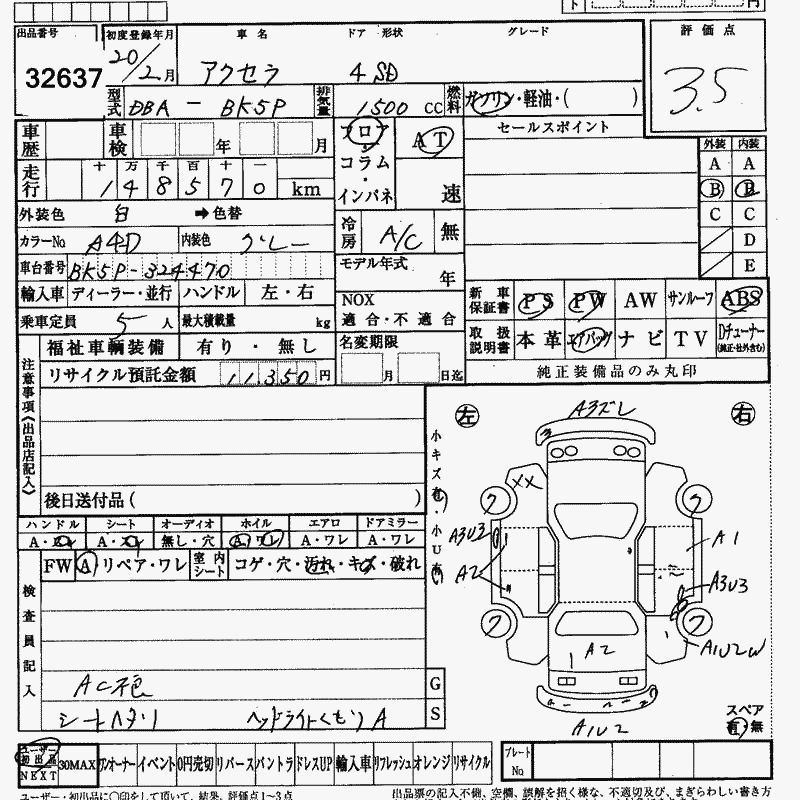 出品番号 初度登録年月 車名 ドア 形状 グレード 評価点
32637 20/2月 アクセラ 4 SD 3.5
型式 DBA-BK5P 排気量 1500 CC 燃料 ガソリン・軽油・( )
車歴 車検 年 月 フロア・コラム・インパネ AT セールスポイント 外装 内装
A A
走行 十 万 千 百 十 一
148570 km 速 B B
外装色 白 ➡色替 冷房 A/C 無 C C
カラーNo A4D 内装色 グレー D
車台番号 BK5P-324470 モデル年式 年 E
輸入車 ディーラー・並行 ハンドル 左・右 NOX 適合・不適合 新車保証書 PS PW AW サンルーフ ABS
乗車定員 5人 最大積載量 kg 取扱説明書 本革 エアバッグ ナビ TV Dチューナー(純正・社外含む)
福祉車輌装備 有り・無し 名変期限 月 日迄 純正装備品のみ丸印
リサイクル預託金額 11,350円
注意事項(出品店記入)
後日送付品( )
左 右
A3ズレ
小キズ有・小U有
XX
A3U3
A2
A1
A3U3
A1U2W
A2
A1U2
スペア
有・無
ハンドル シート オーディオ ホイル エアロ ドアミラー
A・スレ A・スレ 無し・穴 A・ワレ A・ワレ A・ワレ
FW A リペア・ワレ 室内シート コゲ・穴・汚れ・キズ・破れ
検査員記入
AC不良 G
シートヘタリ ヘッドライトくもりA S
ユーザー初出品 NEXT 30MAX ワンオーナー イベント 0円売切 リバース バントラ ドレスUP 輸入車 リフレッシュ オレンジ リサイクル プレートNo
ユーザー・初出品に〇印をして頂いて、結果、評価点1〜3点
出品票の記入不備、空欄、誤解を招く様な、不適切及び、まぎらわしい書き方